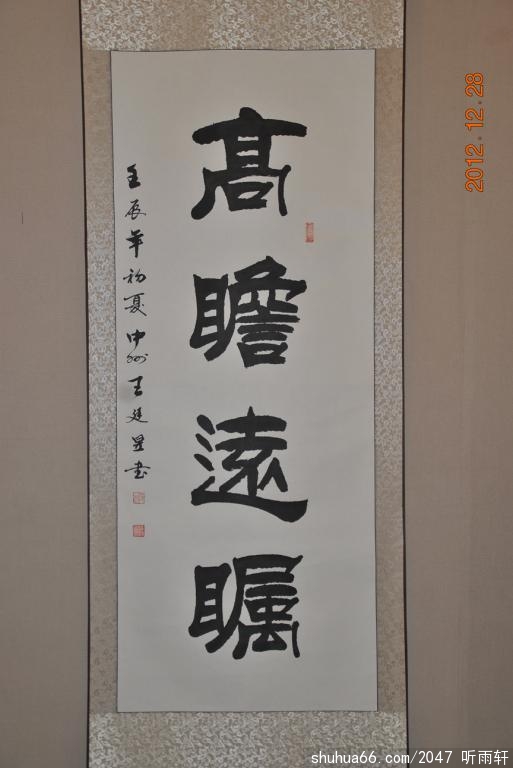 高瞻遠矚
壬辰年初夏中州王廷昱书
2012.12.28
shuhua66.com/2047 听雨轩